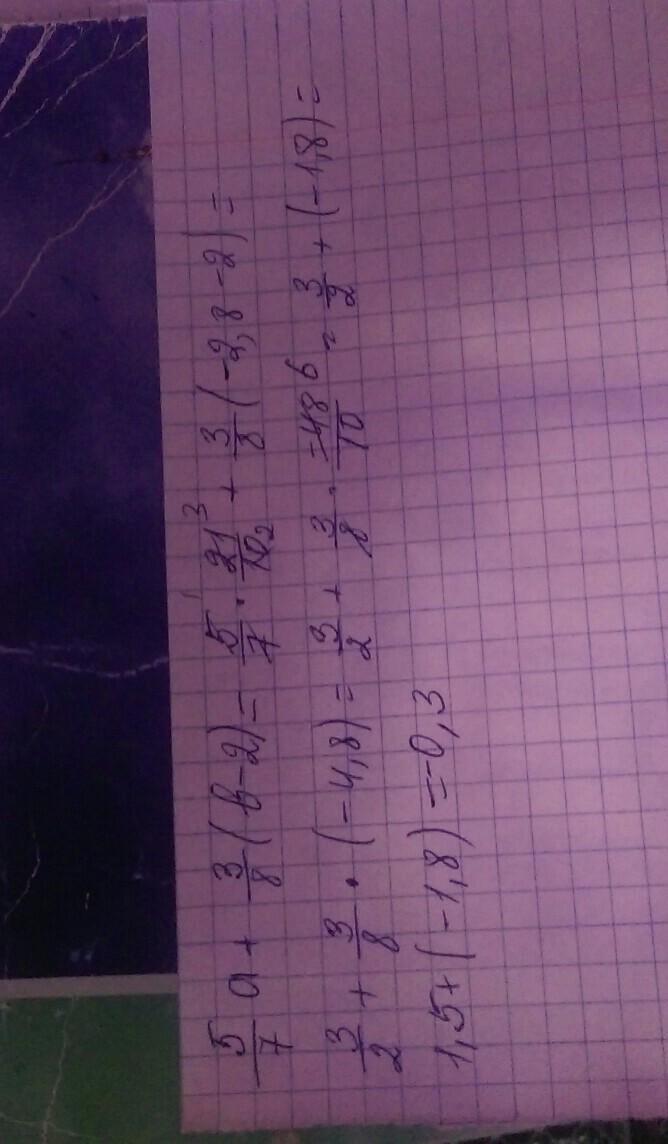 5/7 a + 3/8 (b - 2) = 5/7 · 21³/10₂ + 3/8 (-2,8 - 2) =
3/2 + 3/8 · (-4,8) = 3/2 + 3/8 · -48⁶/10 = 3/2 + (-1,8) =
1,5 + (-1,8) = -0,3